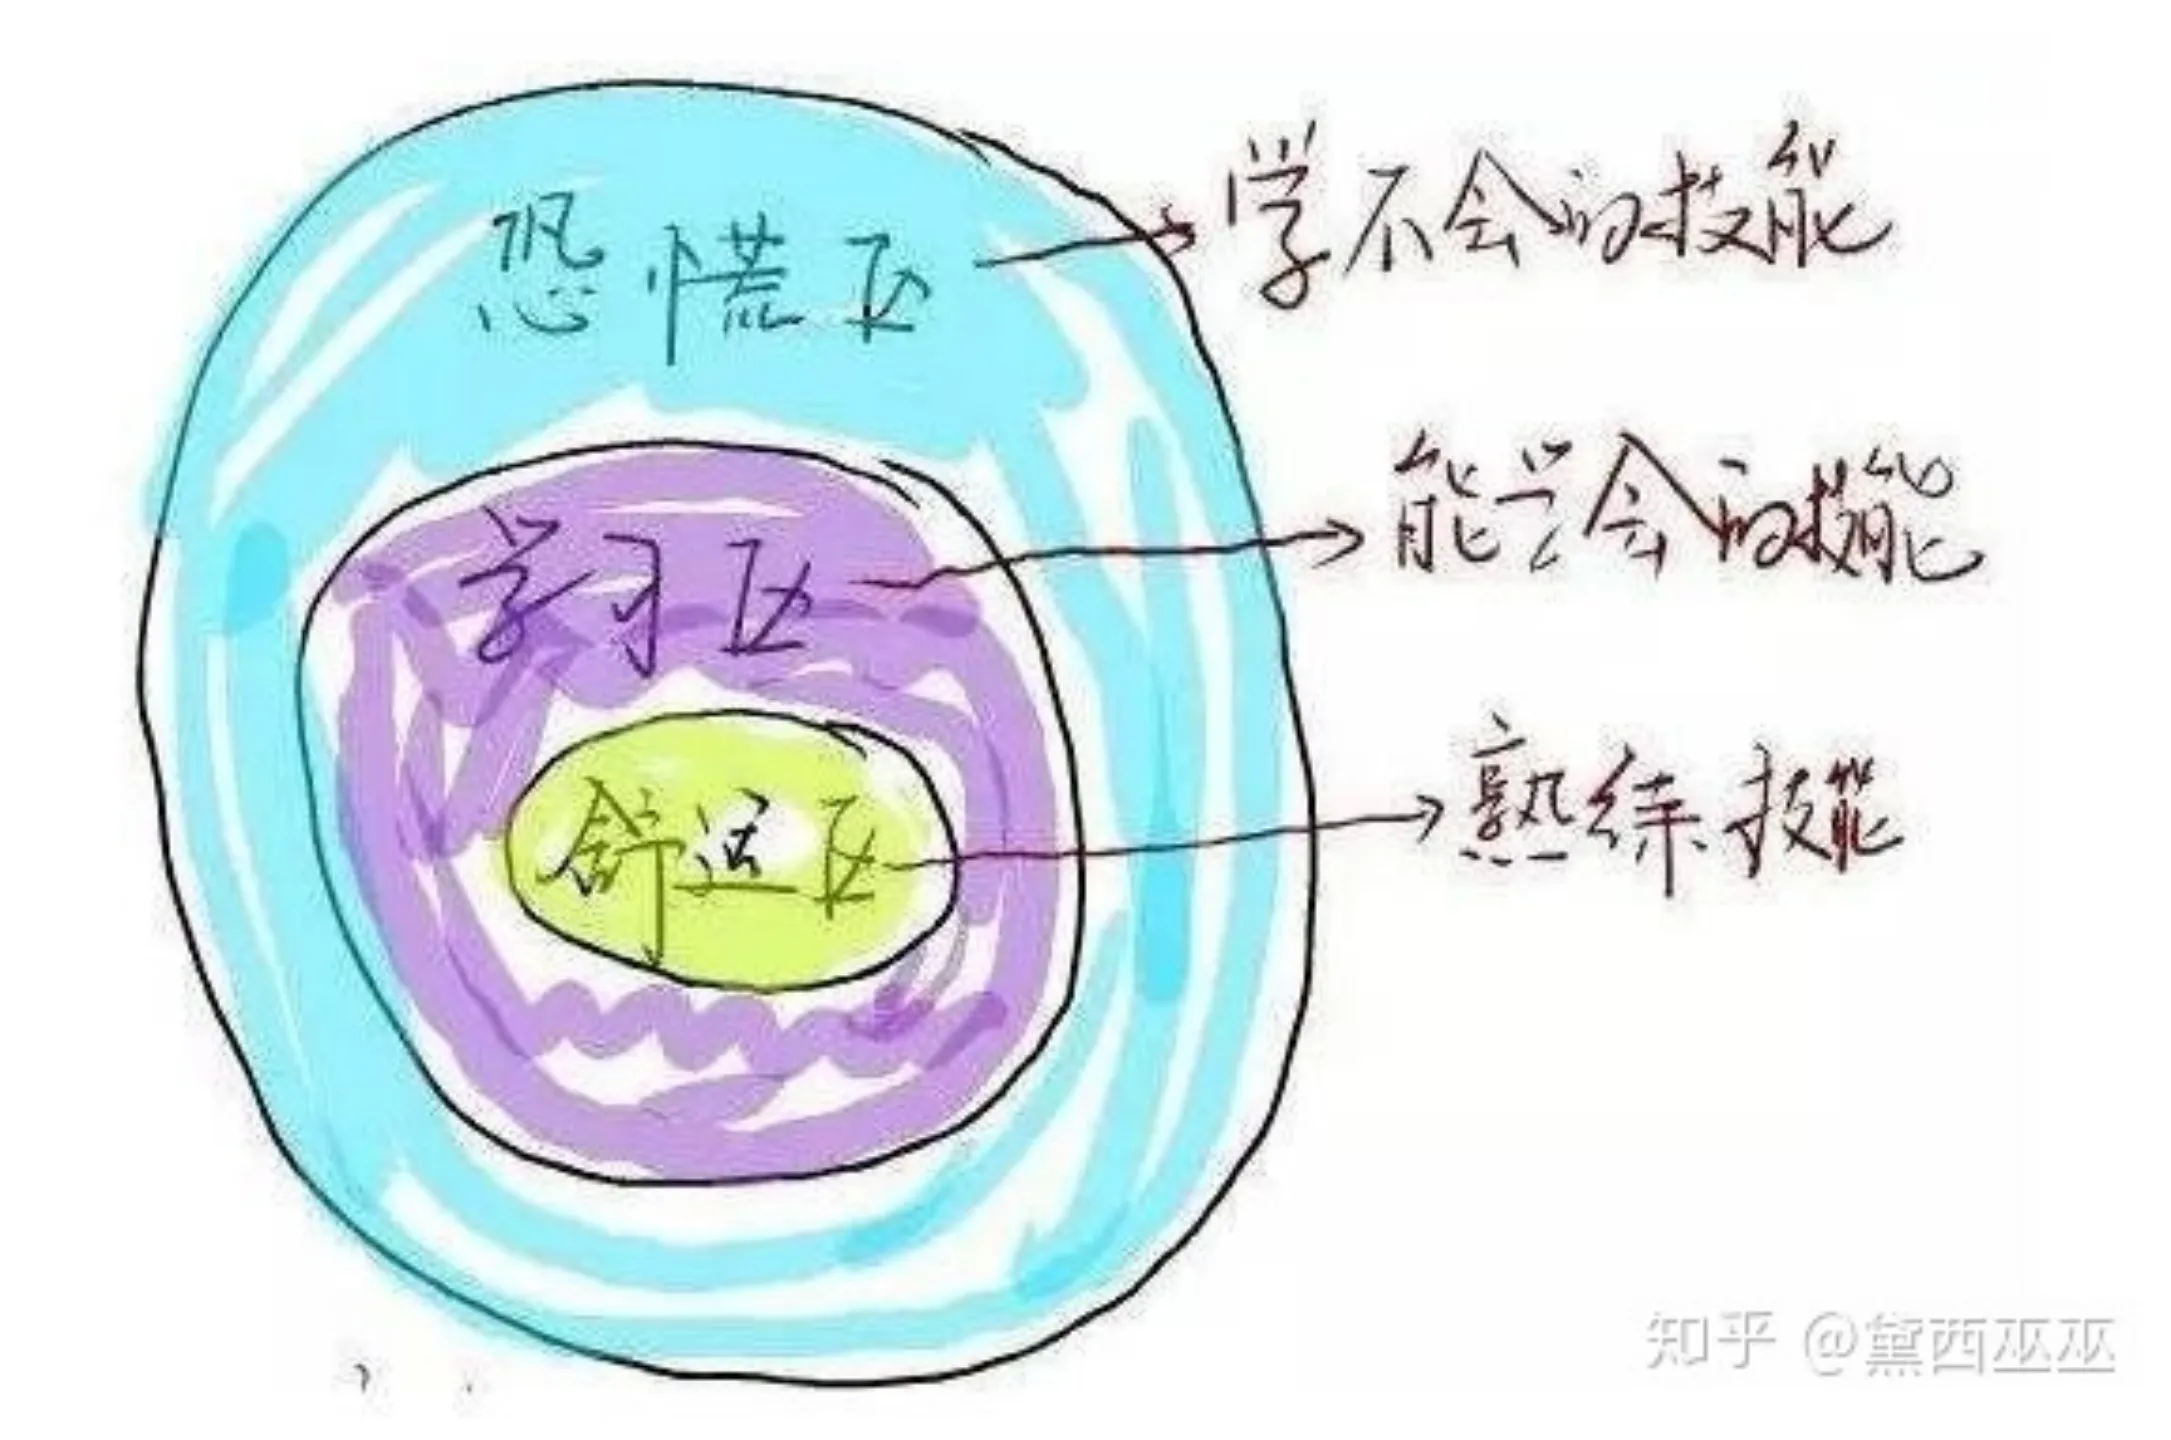 恐慌区
学不会的技能
学习区
能学会的技能
舒适区
熟练技能
知乎 @黛西巫巫